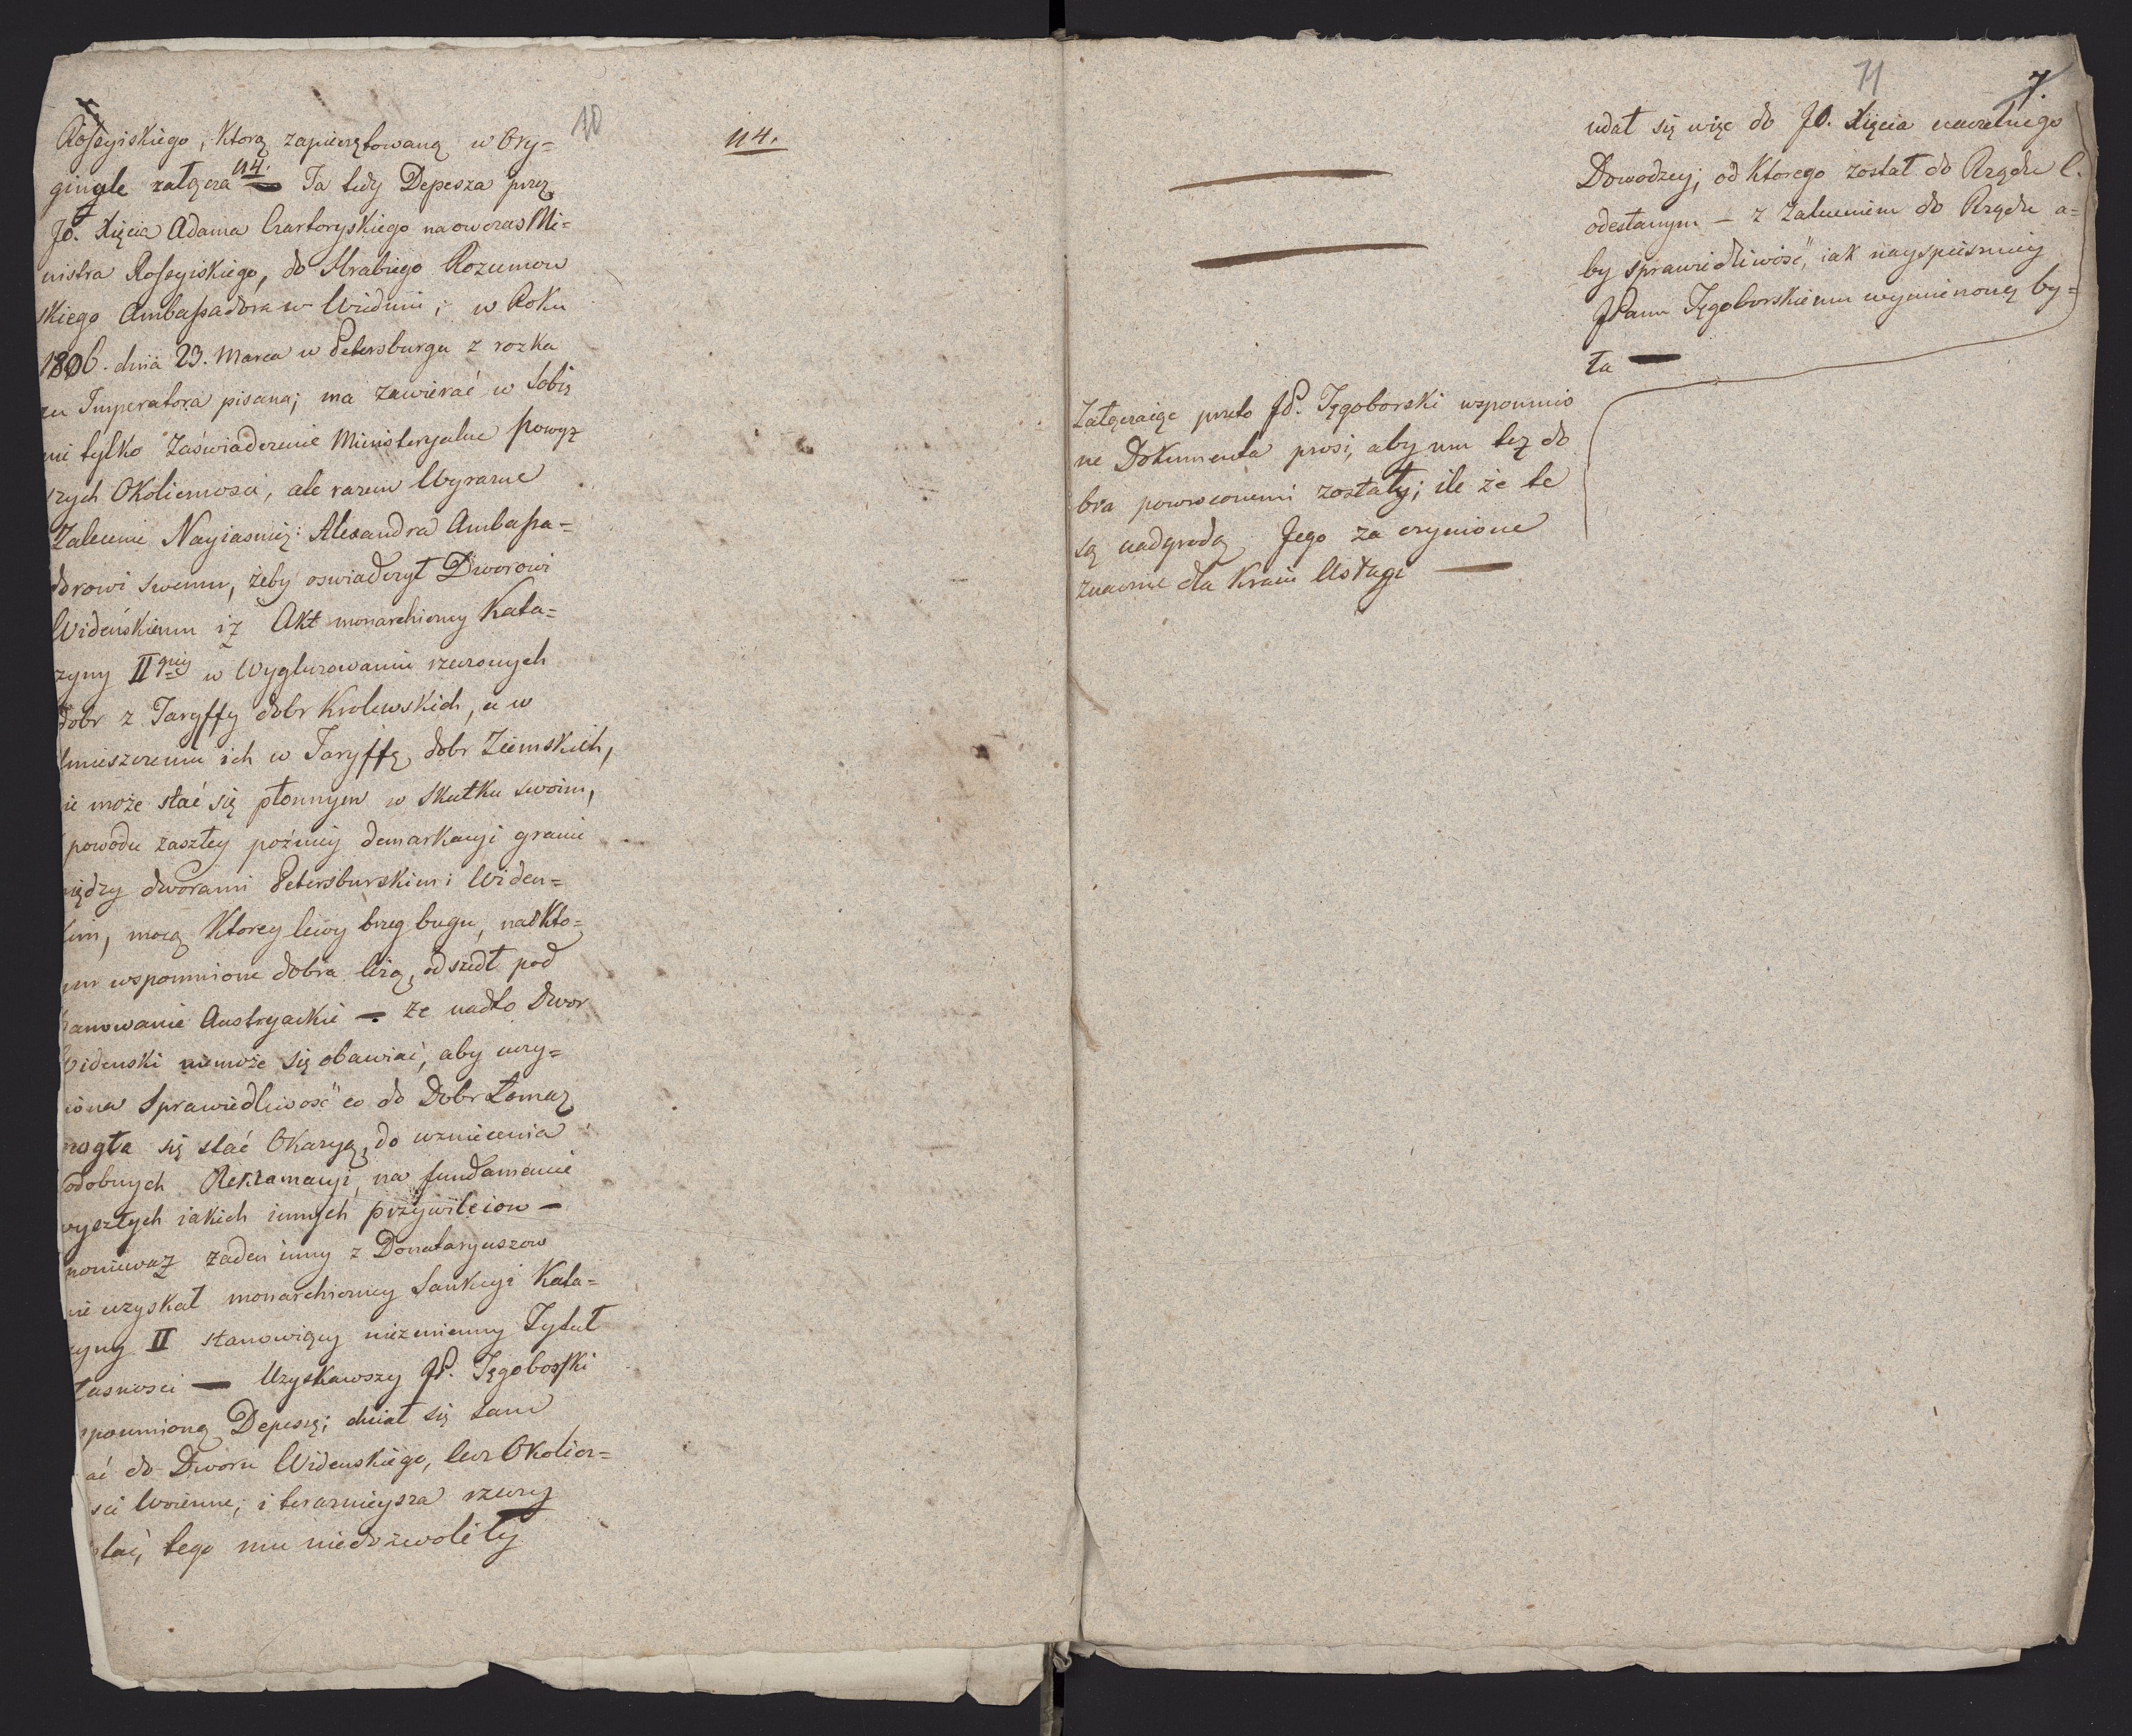 10
Rosſyiskiego, ktorą zapieczętowaną w Ory=
ginale załącza n4. — Ta tedy Depesza przez
JO. Xięcia Adama Czartoryskiego naowczas Mi=
nistra Rosſyiskiego, do Hrabiego Rozumow
skiego Ambaſsadora w Widniu; w Roku
1806. dnia 23. Marca w Petersburgu z rozka
zu Imperatora pisana; ma zawierać w sobie
nie tylko Zaświadczenie Ministeryalne powyż
szych Okoliczności, ale razem Wyrazne
Zalecenie Nayiasniey: Alexandra Ambaſsa=
dorowi swemu, żeby oswiadczył Dworowi
Wideńskiemu iż Akt monarchiczny Kata=
zyny II giey w Wyglurowaniu rzeczonych
dobr z Taryffy dobr Krolewskich, a w
Umieszczeniu ich w Taryffę dobr Ziemskich,
ie może stać się płonnym w skutku swoim,
powodu zaszłey poźniey demarkacyi granic
między dworami Petersburskim i Widen=
kim, mocą Ktorey lewy brzeg bugu, nad Kto=
rem wspomnione dobra leżą, odszedł pod
Panowanie Austryackie — że nadto Dwor
Widenski niemoże się obawiać, aby uczy=
niona Sprawiedliwość co do Dobr Łomaz
mogła się stać Okazyą, do wzniecenia
podobnych Reklamacyi, na fundamencie
wyszłych iakich innych przywileiow —
poniewaz żaden inny z Donataryuszow
nie uzyskał monarchiczney Sankcyi Kata=
zyny II stanowiącey niezmienny Tytuł
łasnosci — Uzyskawszy JP. Tęgoborſki
spomnioną Depeszę; chciał się sam
ać do Dworu Widenskiego, lecz Okolicz=
sci Woienne, i teraznieysza rzeczy
stać, tego mu niedozwoliły
n4.
71
7.
udał się więc do JO. Xięcia naczelnego
Dowodzcy; od Ktorego został do Rządu C.
odesłanym — z Zaleceniem do Rządu a=
by sprawiedliwość, iak nayspieszniey
JPanu Tęgoborskiemu wymierzoną by=
ła —
Załączaiąc przeto JP. Tęgoborski wspomnio
ne Dokumenta prosi, aby mu też do
bra powroconemi zostały; ile że te
są nadgrodą Jego za czynione
znacznie dla Kraiu Usługi —